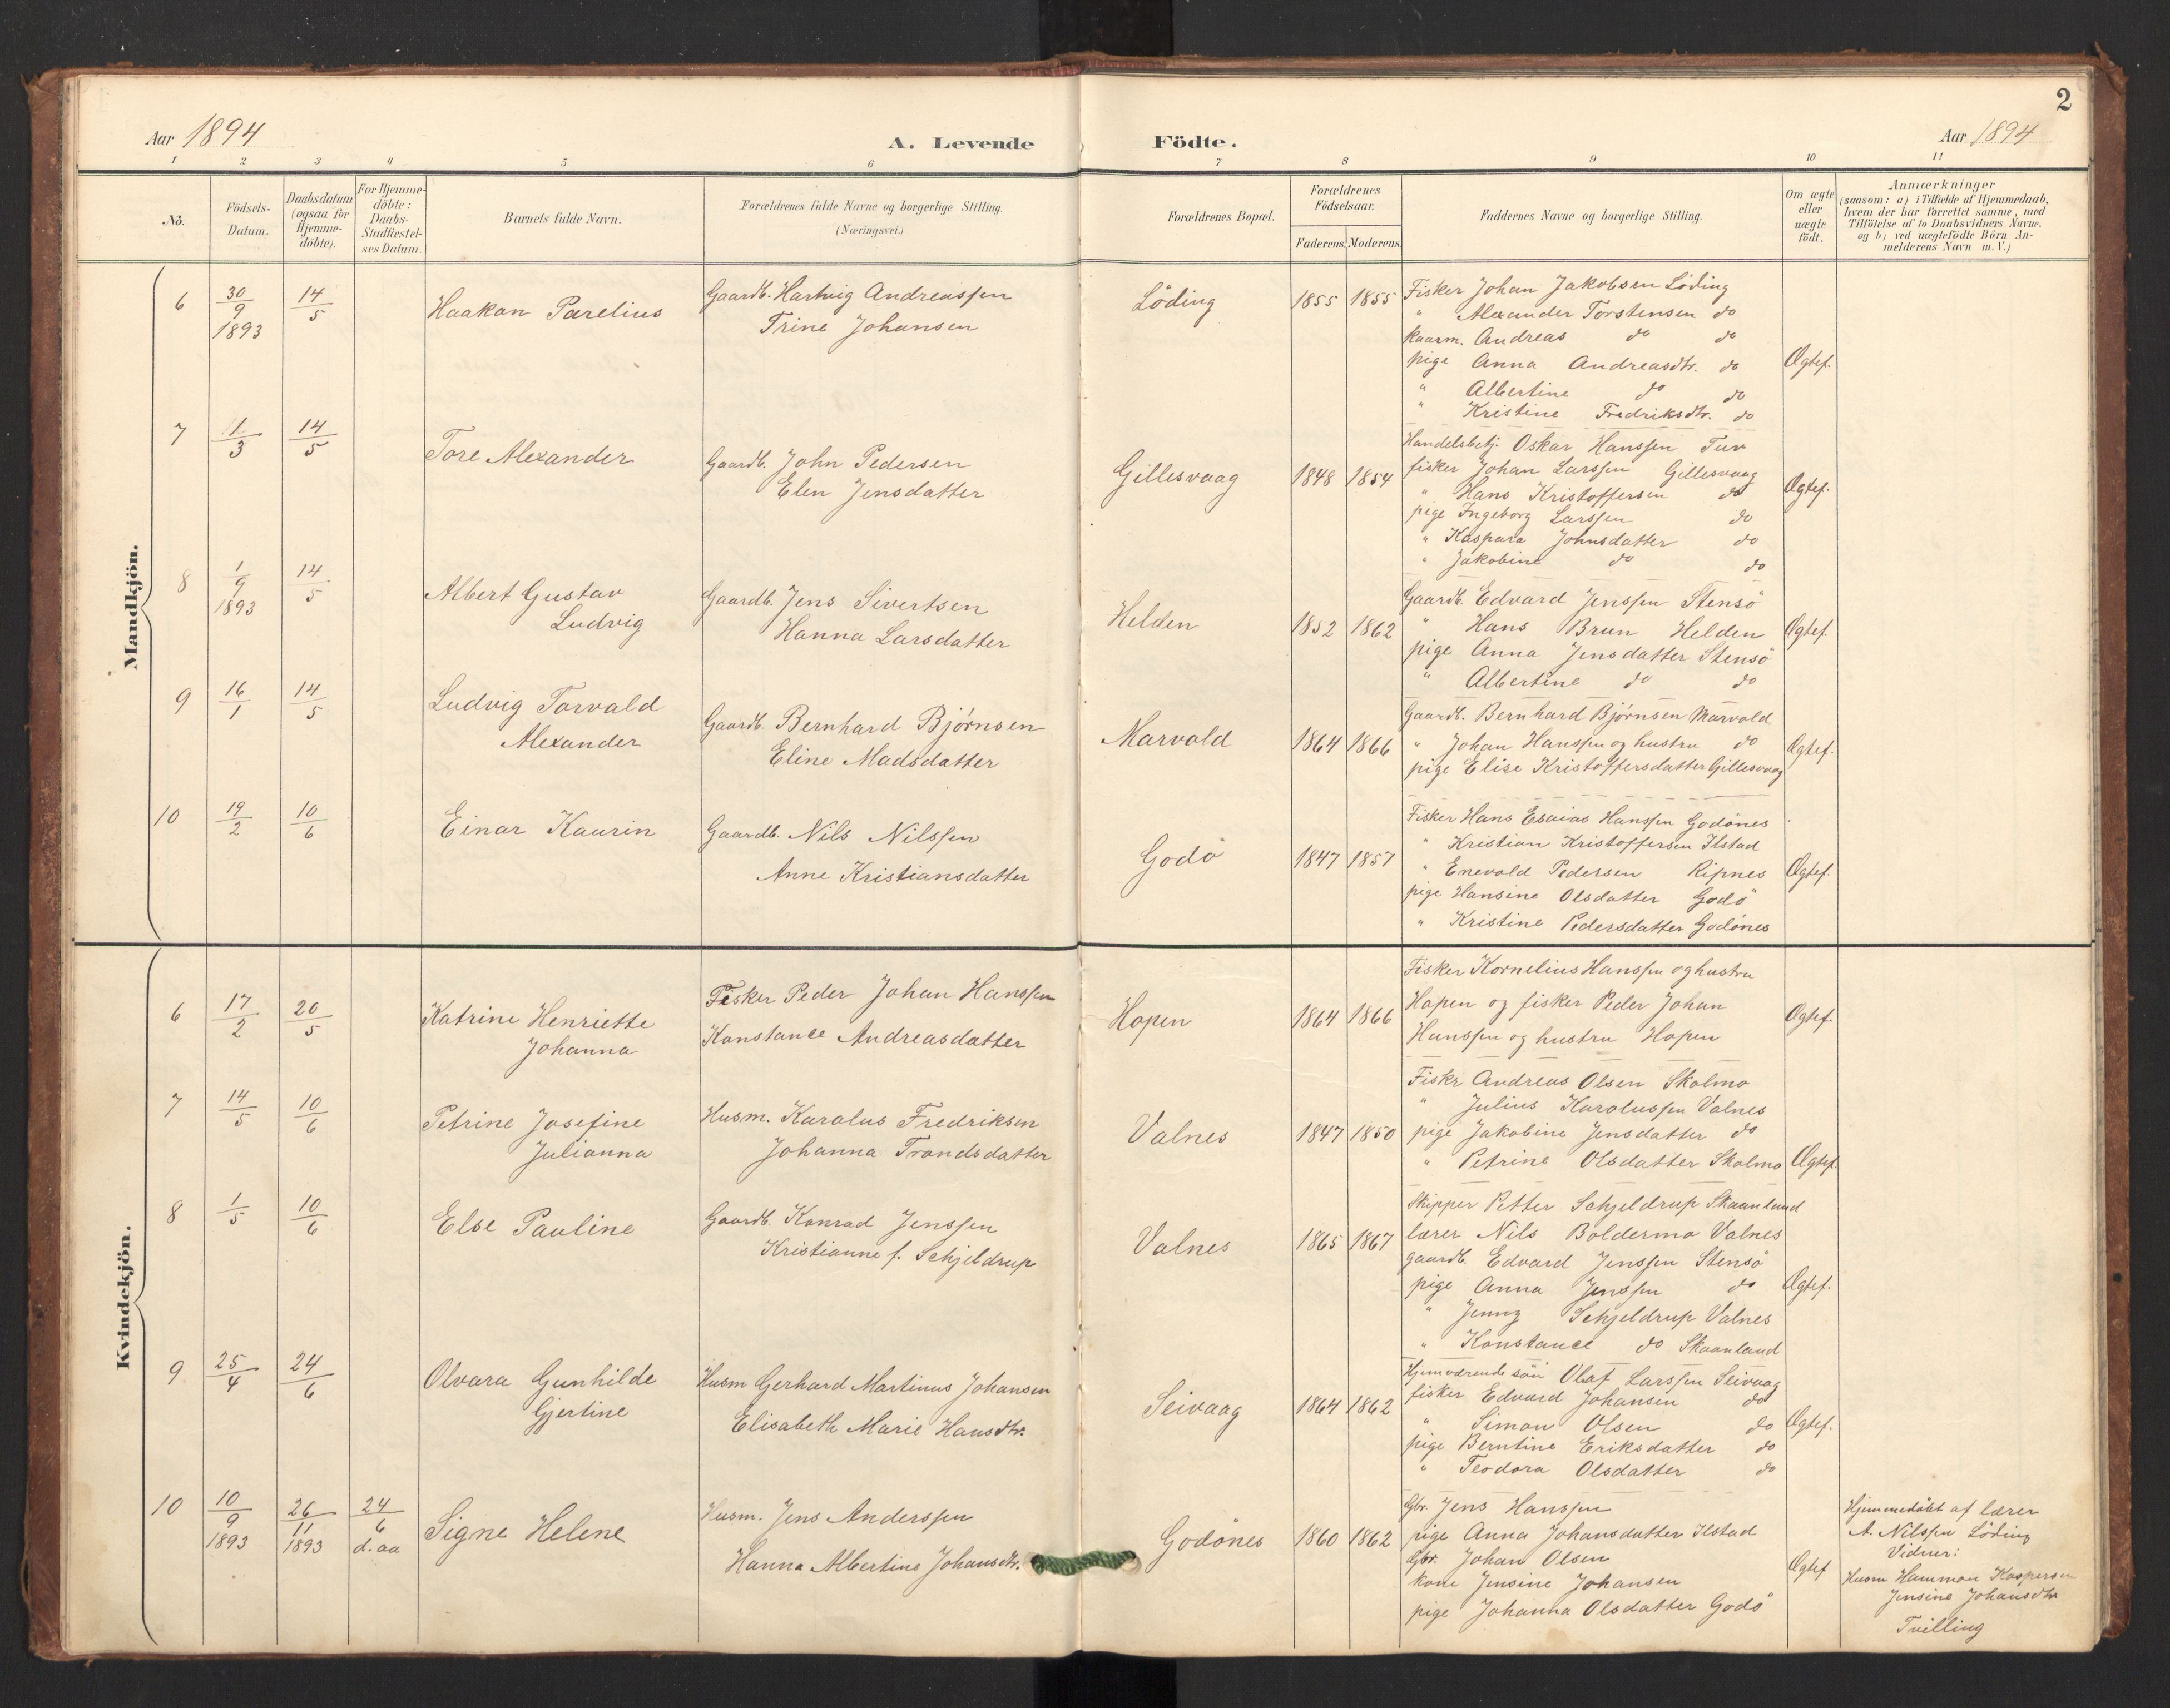 2
Aar 1894
A. Levende Födte.
Aar 1894
1 2 3 4 5 6 7 8 9 10 11
No.
Födsels-Datum.
Daabsdatum (ogsaa för Hjemme-döbte).
For Hjemme-döbte: Daabs-Stadfæstel-ses Datum.
Barnets fulde Navn.
Forældrenes fulde Navne og borgerlige Stilling.
(Næringsvei.)
Forældrenes Bopæl.
Forældrenes Födselsaar.
Faderens. Moderens.
Faddernes Navne og borgerlige Stilling.
Om ægte eller uægte födt.
Anmærkninger
(saasom: a) i Tilfælde af Hjemmedaab,
hvem der har forrettet samme, med
Tilföielse af to Daabsvidners Navne.
og b) ved uægtefödte Börn An-
melderens Navn m. V.)
Mandkjön.
6 30/9 1893 14/5
Haakon Parelius
Gaardb. Hartvig Andreassen
Trine Johansen
Löding 1855 1855
Fisker Johan Jakobsen Löding
" Alexander Torstensen do
Kaarm. Andreas do do
pige Anna Andreasdtr. do
" Albertine do do
" Kristine Fredriksdtr. do
Ægtef.
7 11/3 14/5
Tore Alexander
Gaardb. John Pedersen
Elen Jensdatter
Gillesvaag 1848 1854
Handelsbetj. Oskar Hanssen Tuv
fisker Johan Larssen Gillesvaag
" Hans Kristoffersen do
pige Ingeborg Larssen do
" Kaspara Johnsdatter do
" Jakobine do do
Ægtef.
8 1/9 1893 14/5
Albert Gustav
Ludvig
Gaardb. Jens Sivertsen
Hanna Larsdatter
Helden 1852 1862
Gaardb. Edvard Jenssen Stensö
" Hans Brun Helden
pige Anna Jensdatter Stensö
" Albertine do do
Ægtef.
9 16/1 14/5
Ludvig Torvald
Alexander
Gaardb. Bernhard Bjørnsen
Eline Madsdatter
Marvold 1864 1866
Gaardb. Bernhard Bjørnsen Marvold
" Johan Hanssen og hustru do
pige Elise Kristoffersdatter Gillesvaag
Ægtef.
10 19/2 10/6
Einar Kaurin
Gaardb. Nils Nilssen
Anne Kristiansdatter
Godö 1847 1857
Fisker Hans Esaias Hanssen Godönes
" Kristian Kristoffersen Ilstad
" Enevold Pedersen Ripnes
pige Hansine Olsdatter Godö
" Kristine Pedersdatter Godönes
Ægtef.
Kvindekjön.
6 17/2 20/5
Katrine Henriette
Johanna
Fisker Peder Johan Hanssen
Konstance Andreasdatter
Hopen 1864 1866
Fisker Kornelius Hanssen og hustru
Hopen og fisker Peder Johan
Hanssen og hustru Hopen
Ægtef.
7 14/5 10/6
Petrine Josefine
Julianna
Husm. Karolus Fredriksen
Johanna Trondsdatter
Valnes 1847 1850
Fiskr Andreas Olsen Skolmo
" Julius Karolussen Valnes
pige Jakobine Jensdatter do
" Petrine Olsdatter Skolmo
Ægtef.
8 1/5 10/6
Else Pauline
Gaardb. Konrad Jenssen
Kristianne f. Schjeldrup
Valnes 1865 1867
Skipper Petter Schjeldrup Skaanland
lærer Nils Boldermo Valnes
gaardb. Edvard Jenssen Stensö
pige Anna Jenssen do
" Jenny Schjeldrup Valnes
" Konstance do Skaanland
Ægtef.
9 25/4 24/6
Olvara Gunhilde
Gjertine
Husm Gerhard Martinus Johansen
Elisabeth Marie Hansdtr.
Seivaag 1864 1862
Hjemværende sön Olaf Larssen Seivaag
fisker Edvard Johansen do
" Simon Olsen do
pige Berntine Eriksdatter do
" Teodora Olsdatter do
Ægtef.
10 10/9 1893 26/11 1893 24/6 d. aa
Signe Helene
Husm. Jens Anderssen
Hanna Albertine Johansdtr.
Godönes 1860 1862
Gbr. Jens Hanssen
pige Anna Johansdatter Ilstad
Gbr. Johan Olsen
kone Jensine Johansen
pige Johanna Olsdatter Godö
Ægtef
Hjemmedöbt af lærer
A. Nilssen Löding
Vidner:
Husm Hammon Kaspersen
Jensine Johansdtr
Tvilling